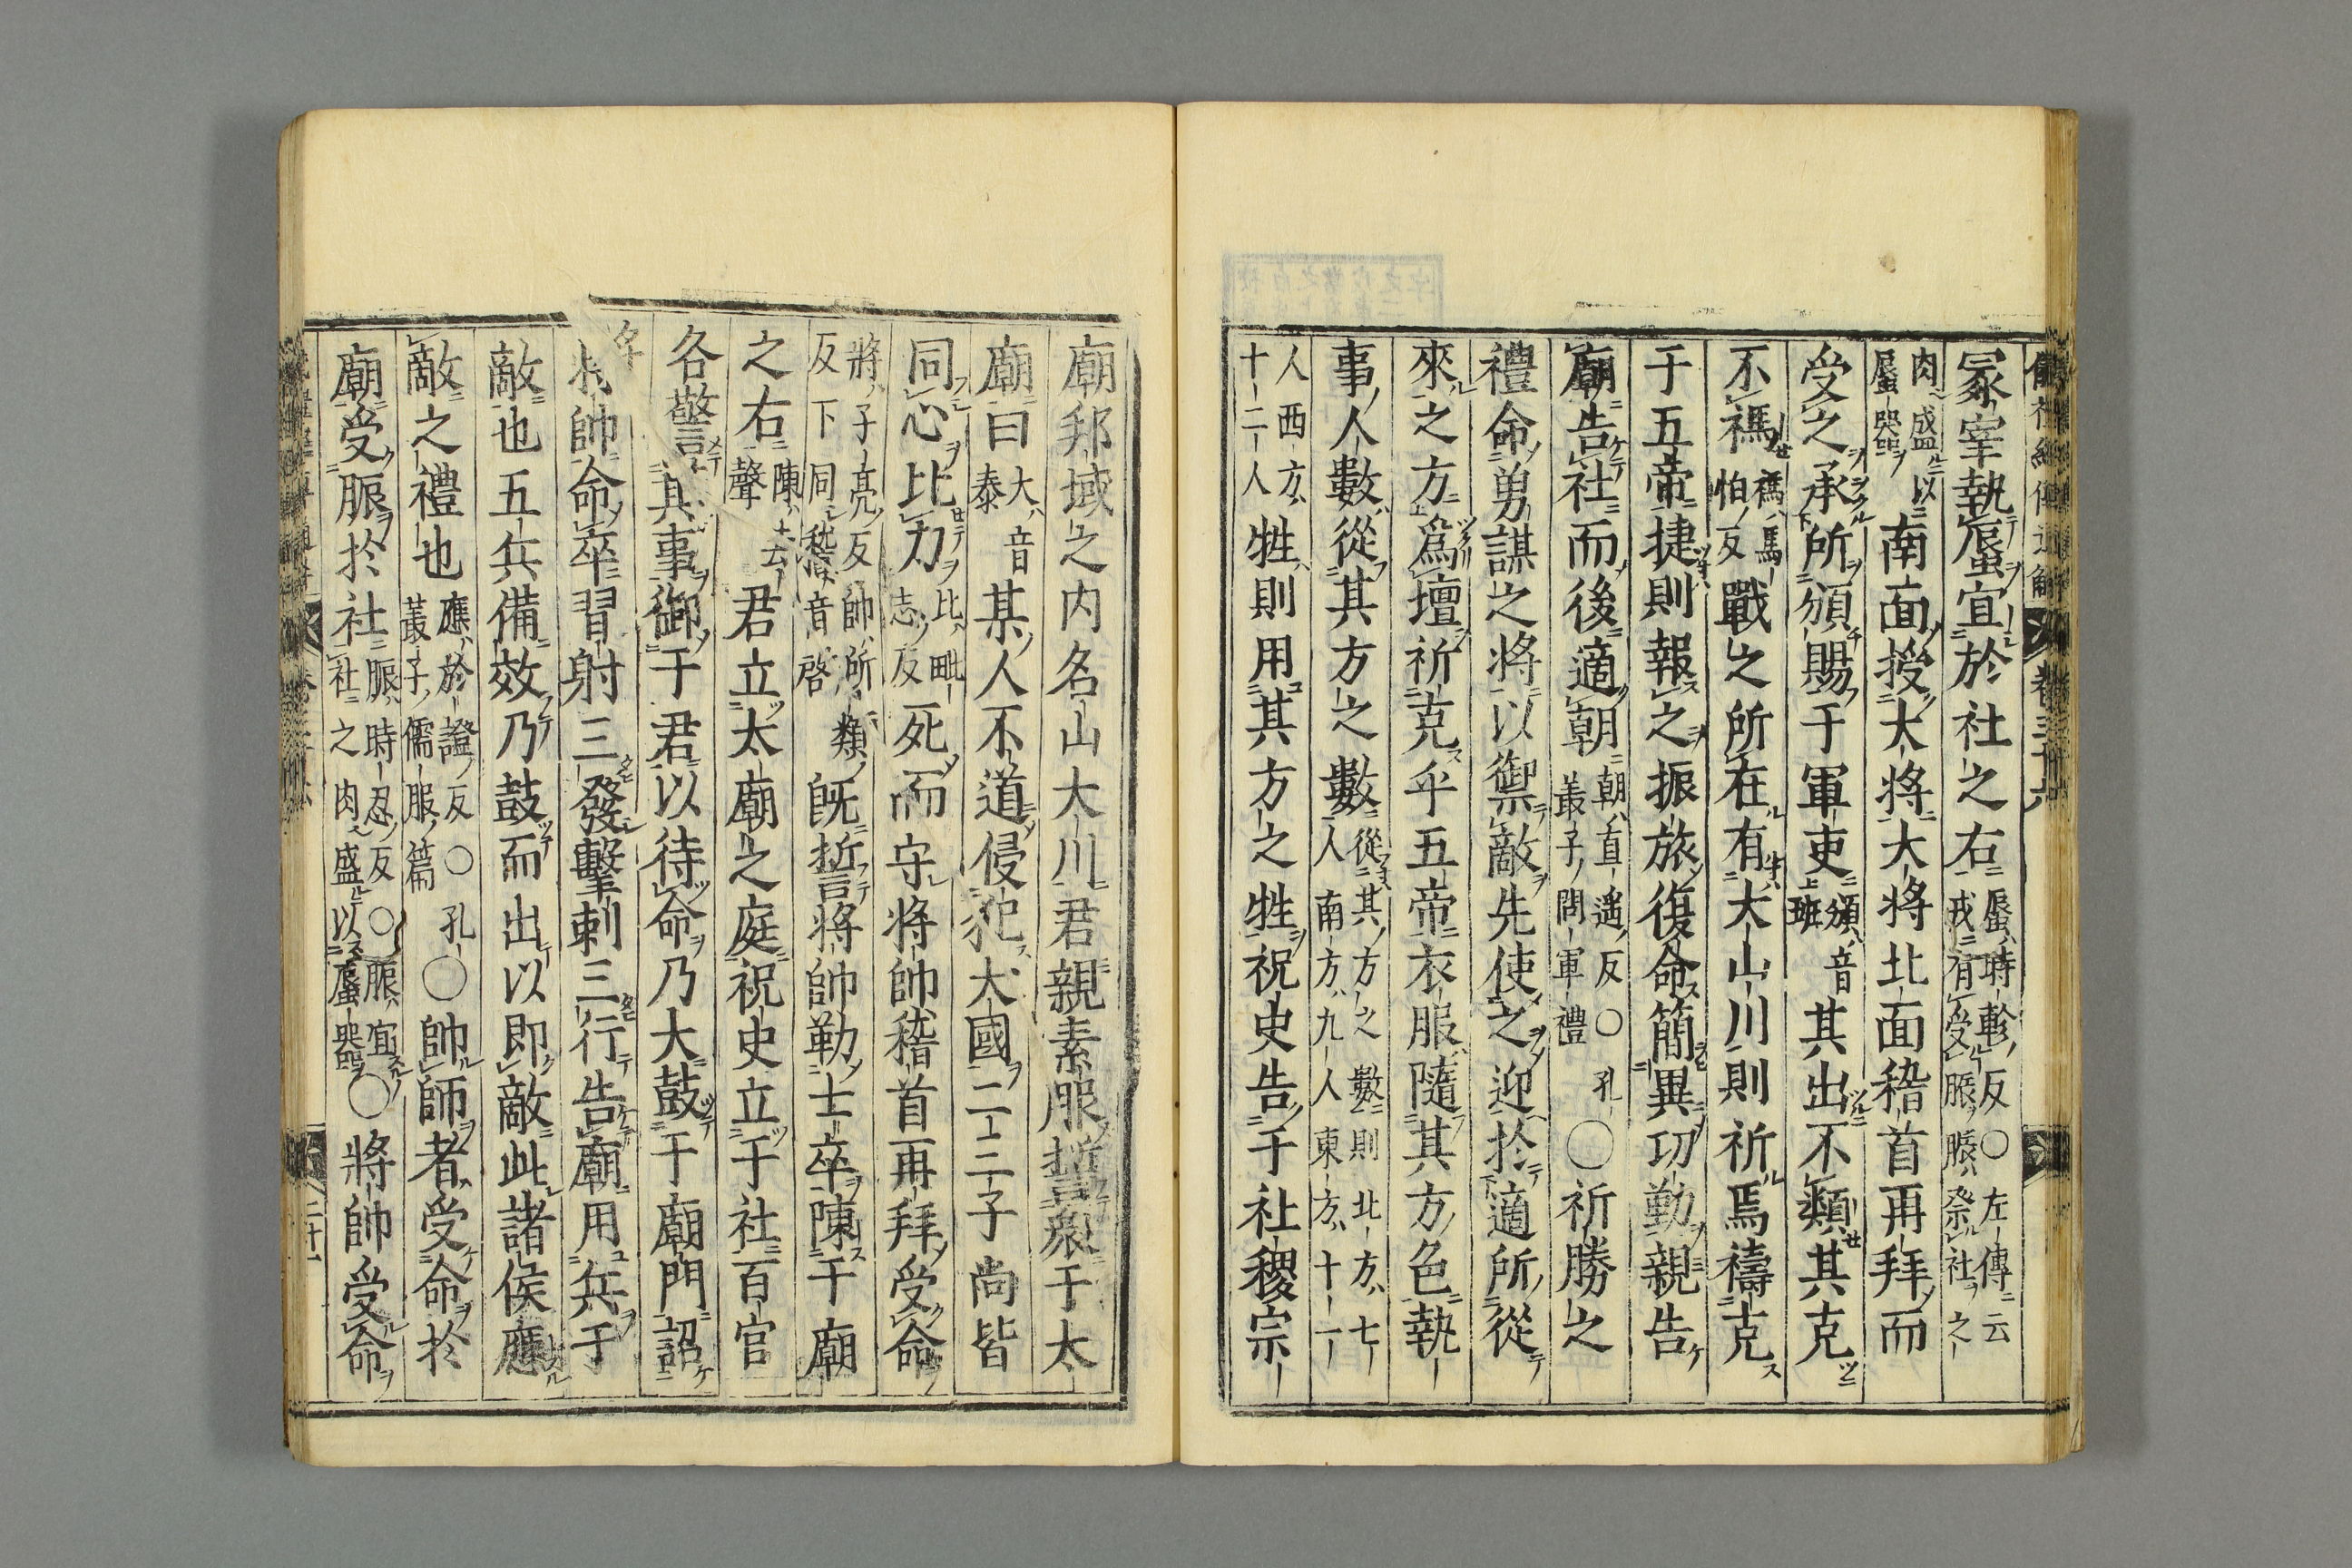 冢宰執蜃宜於社之右蜃時軫反○左傳云戎有受脤脤祭社之
肉盛以蜃器南面授大將大將北面稽首再拜而
受之承所頒賜于軍吏頒音班其出不類其克
不禡禡馬怕反戰之所在有大山川則祈焉禱克
于五帝捷則報之振旅復命簡異功勤親告
廟告社而後適朝朝直遥反○孔叢子問軍禮○祈勝之
禮命勇謀之將以禦敵先使之迎於適所從
來之方爲壇祈克乎五帝衣服隨其方色執
事人數從其方之數從其方之數則北方七人南方九人東方十一
人西方十二人牲則用其方之牲祝史告于社稷宗
廟邦域之内名山大川君親素服誓衆于太
廟曰大音泰某人不道侵犯大國二三子尚皆
同心比力比毗志反死而守將帥稽首再拜受命
將子亮反下同帥所類稽音啓既誓將帥勒士卒陳于廟
之右陳去聲君立太廟之庭祝史立于社百官
各警其事御于君以待命乃大鼓于廟門詔
將帥命卒習射三發擊刺三行告廟用兵于
敵也五兵備效乃鼓而出以即敵此諸侯應
敵之禮也應於證反○孔叢子儒服篇○帥師者受命於
廟受脤於社脤時忍反○脤宜社之肉盛以蜃器○將帥受命
卷三十六
二十一